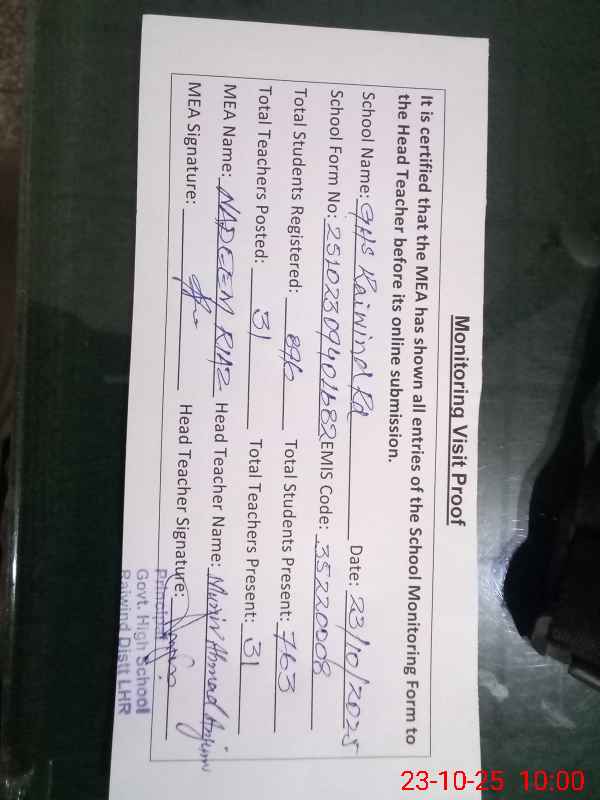 Monitoring Visit Proof
It is certified that the MEA has shown all entries of the School Monitoring Form to
the Head Teacher before its online submission.
School Name: GHS Raiwind Rd Date: 23/10/2025
School Form No: 25102309401682 EMIS Code: 35220008
Total Students Registered: 896 Total Students Present: 763
Total Teachers Posted: 31 Total Teachers Present: 31
MEA Name: NADEEM RIAZ Head Teacher Name: Munir Ahmad Anjum
MEA Signature: Head Teacher Signature:
Principal
Govt. High School
Raiwind Distt LHR
23-10-25 10:00